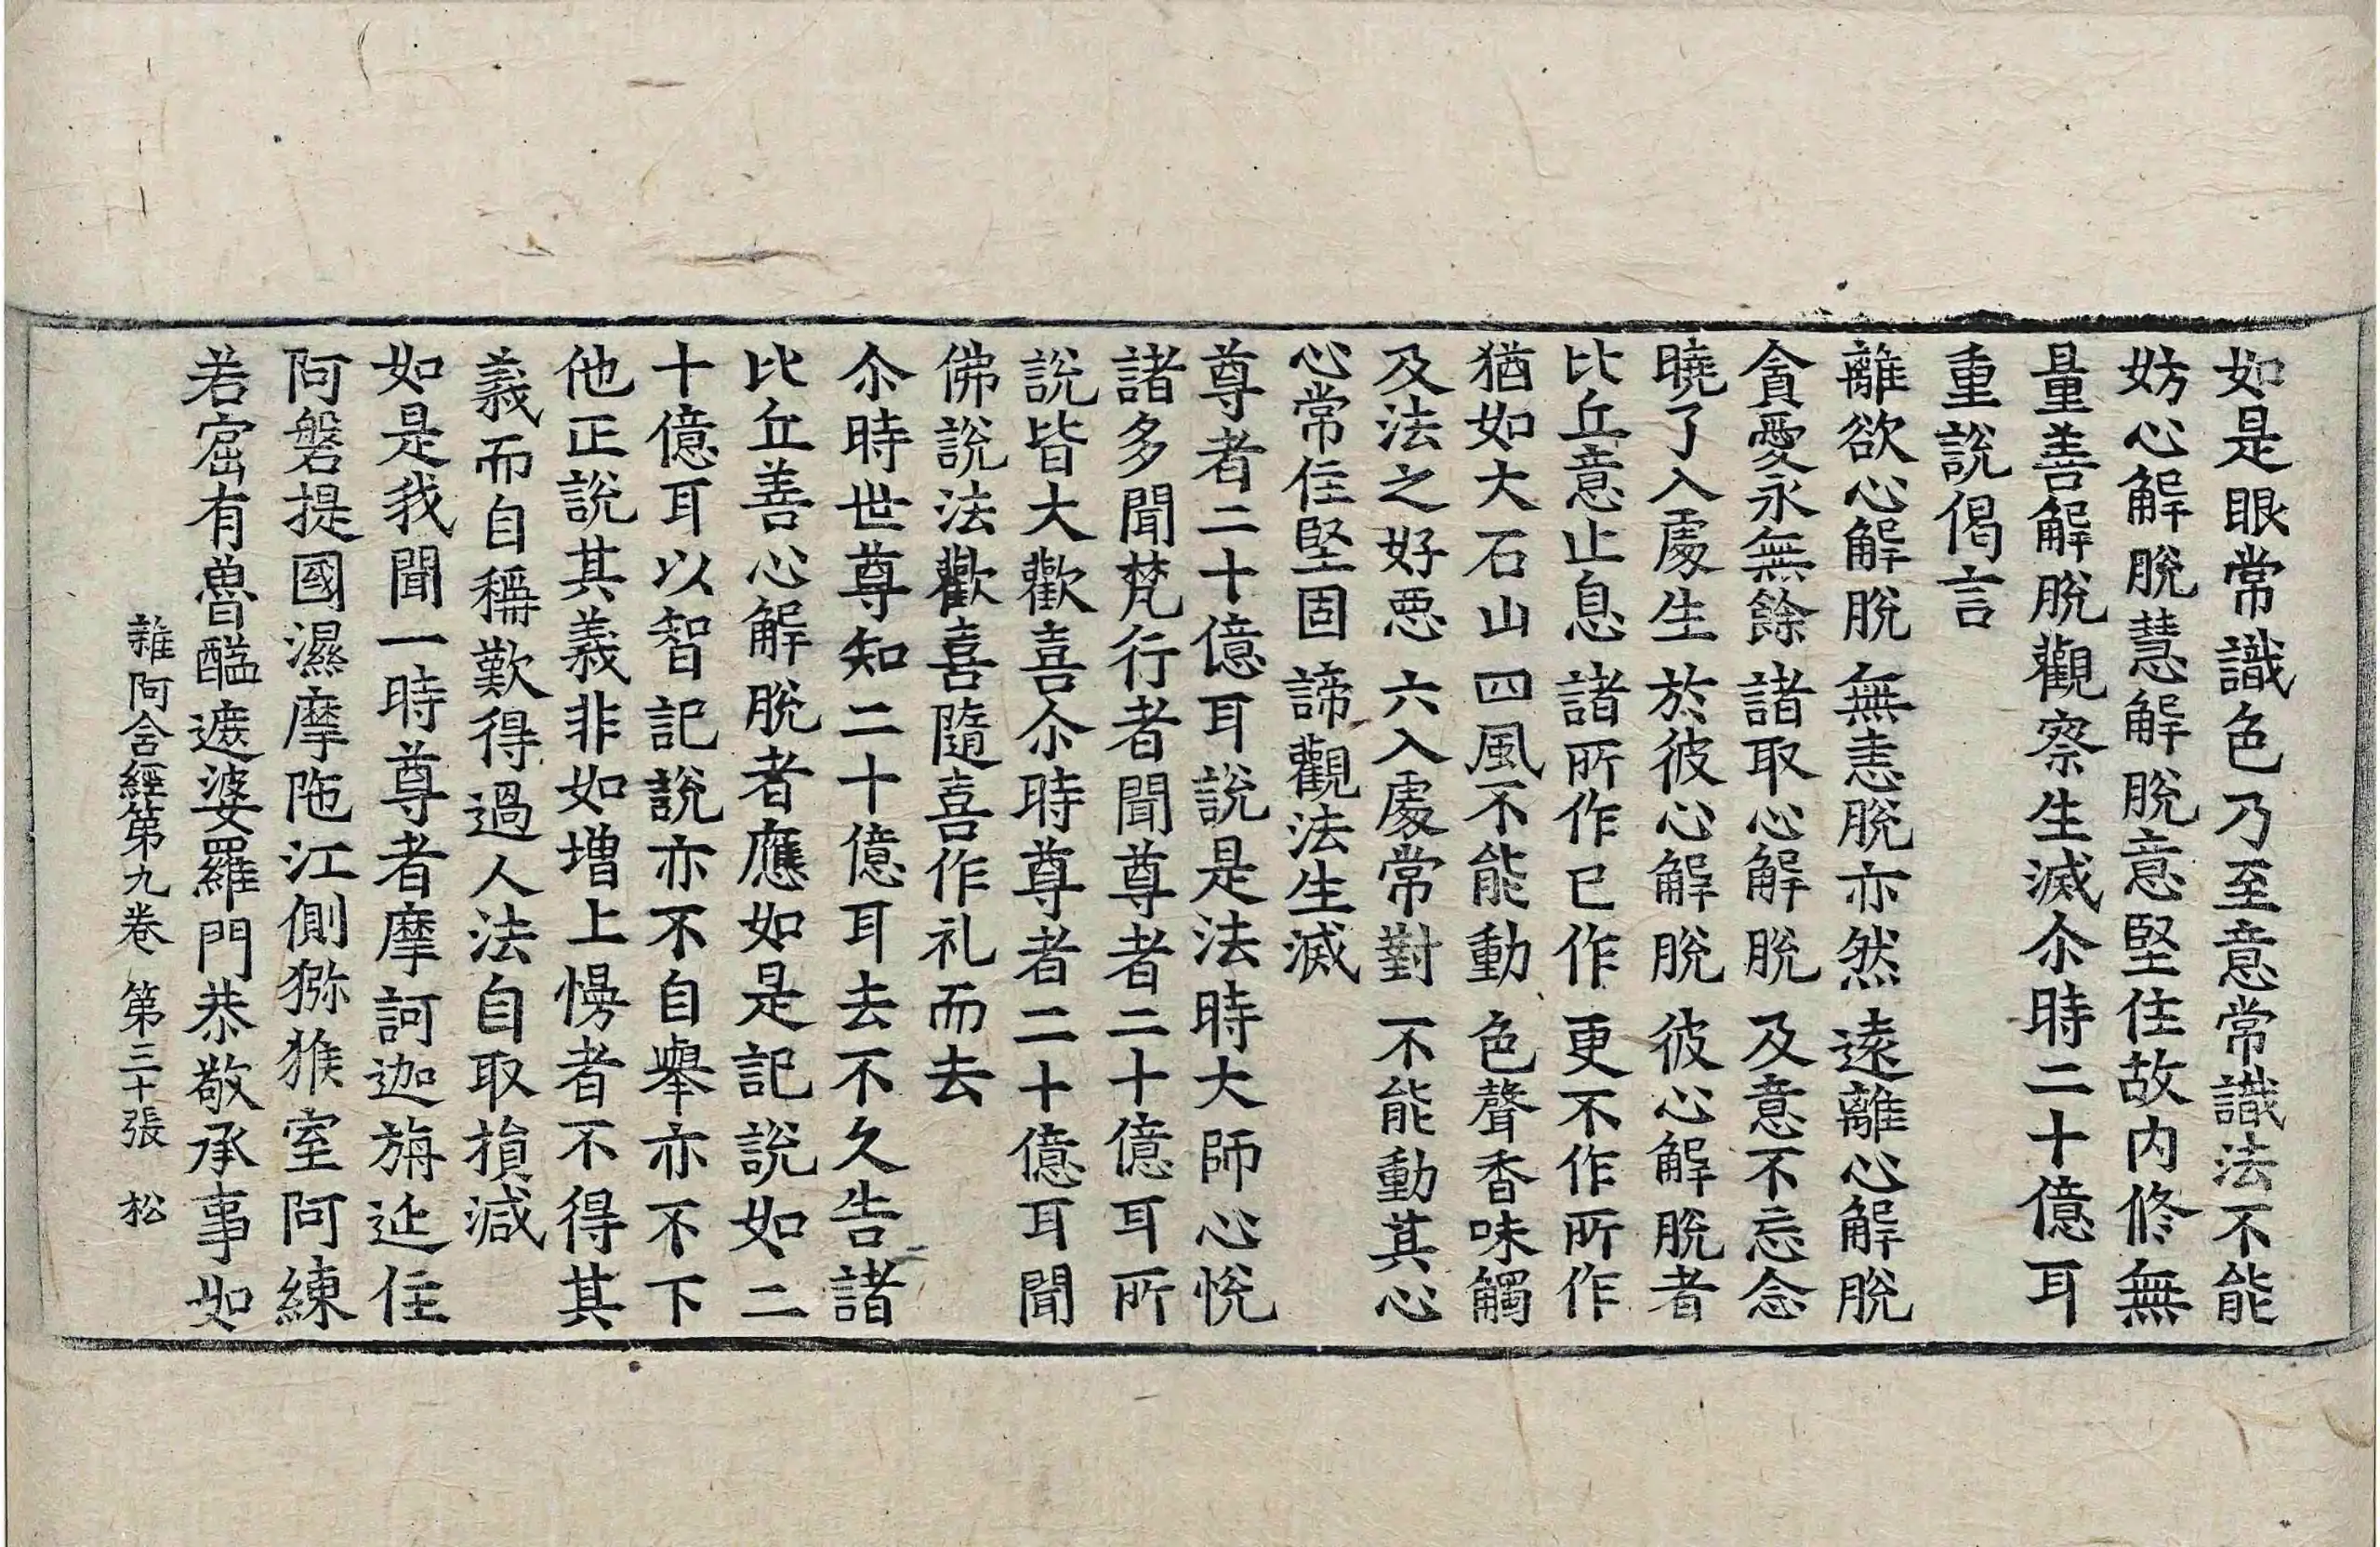 如是眼常識色乃至意常識法不能
妨心解脫慧解脫意堅住故内修無
量善解脫觀察生滅尒時二十億耳
重說偈言
離欲心解脫 無恚脫亦然 遠離心解脫
貪愛永無餘 諸取心解脫 及意不忘念
曉了入處生 於彼心解脫 彼心解脫者
比丘意止息 諸所作已作 更不作所作
猶如大石山 四風不能動 色聲香味觸
及法之好惡 六入處常對 不能動其心
心常住堅固 諦觀法生滅
尊者二十億耳說是法時大師心悅
諸多聞梵行者聞尊者二十億耳所
說皆大歡喜尒時尊者二十億耳聞
佛說法歡喜隨喜作礼而去
尒時世尊知二十億耳去不久告諸
比丘善心解脫者應如是記說如二
十億耳以智記說亦不自舉亦不下
他正說其義非如增上慢者不得其
義而自稱歎得過人法自取損減
如是我聞一時尊者摩訶迦旃延住
阿磐提國濕摩陁江側猕猴室阿練
若窟有魯醯遮婆羅門恭敬承事如
雜阿含經第九卷 第三十張 松